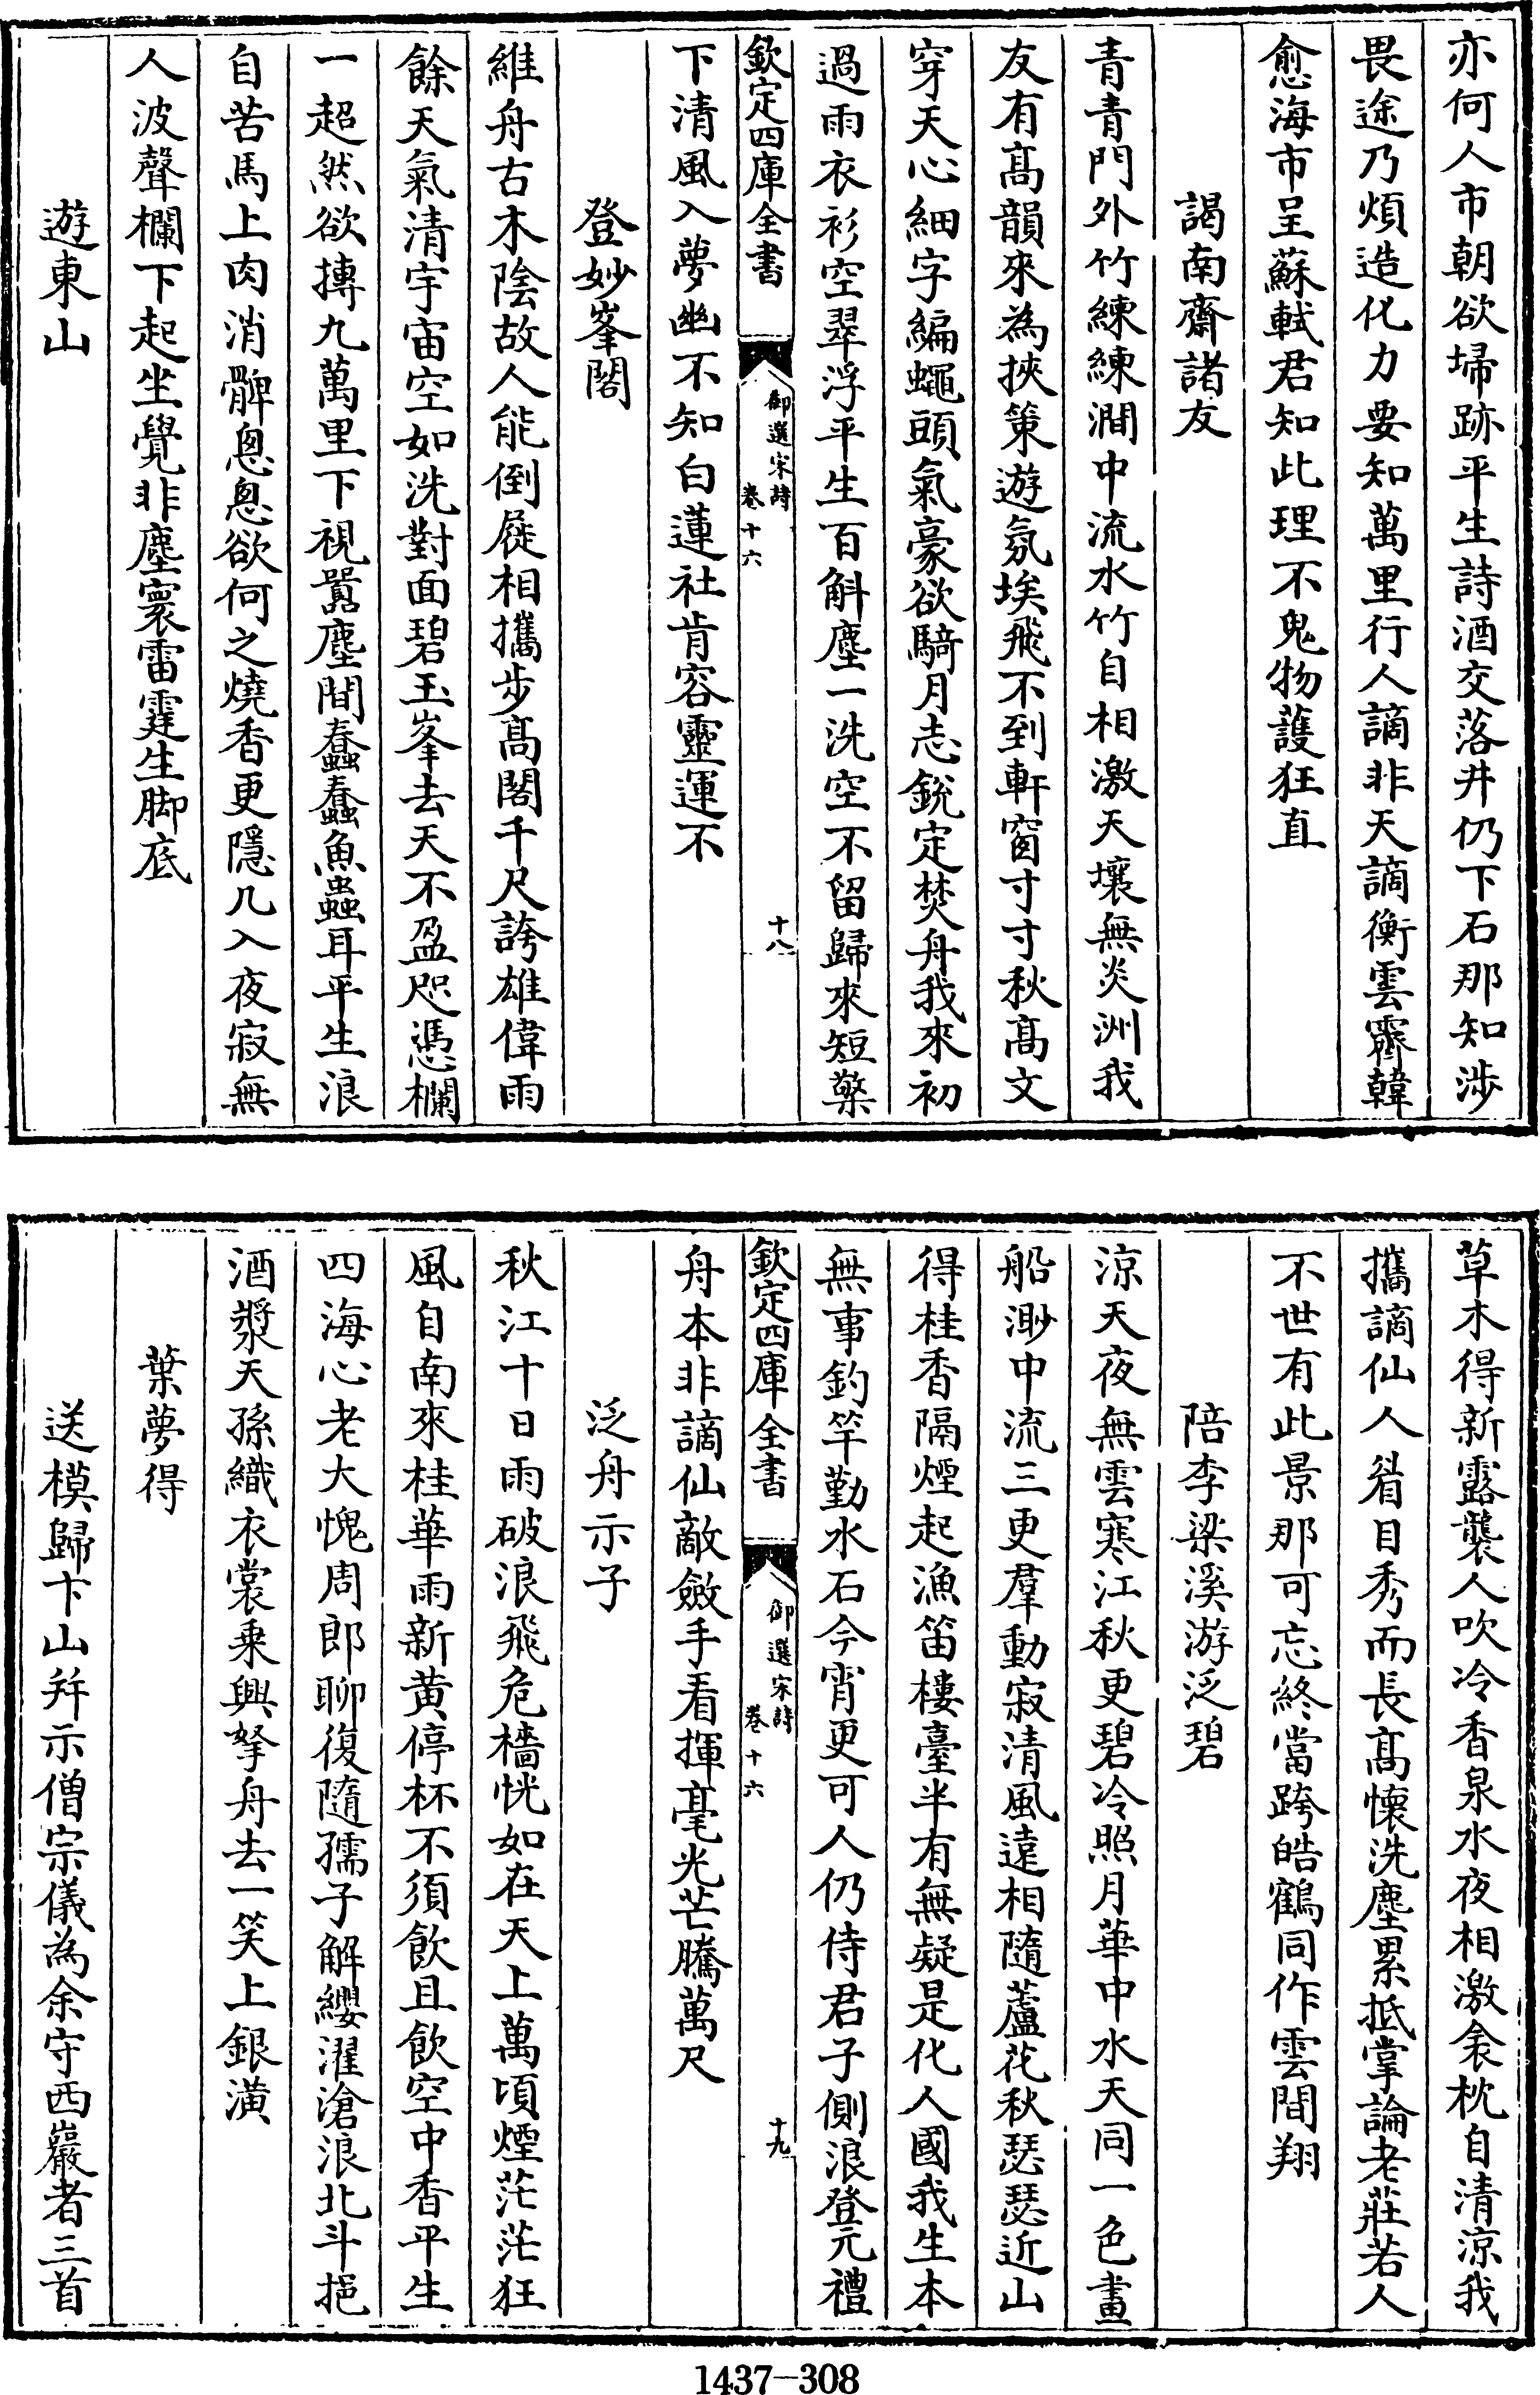 亦何人市朝欲埽跡平生詩酒交落井仍下石那知渉
畏途乃煩造化力要知萬里行人謫非天謫衡雲霽韓
愈海市呈蘇軾君知此理不鬼物䕶狂直
謁南齋諸友
青青門外竹練練澗中流水竹自相激天壤無炎洲我
友有髙韻來為挾策遊氛埃飛不到軒窗寸寸秋髙文
穿天心細字編蠅頭氣豪欲騎月志鋭定焚舟我來初
過雨衣衫空翠浮平生百斛塵一洗空不留歸來短檠
欽定四庫全書
御選宋詩
卷十六
十八
下清風入夢幽不知白蓮社肯容靈運不
登妙峯閣
維舟古木陰故人能倒屣相攜步髙閣千尺誇雄偉雨
餘天氣清宇宙空如洗對面碧玉峯去天不盈咫憑欄
一超然欲摶九萬里下視囂塵間蠢蠢魚蟲耳平生浪
自苦馬上肉消髀悤悤欲何之燒香更隱几入夜寂無
人波聲欄下起坐覺非塵寰雷霆生脚底
遊東山
草木得新露襲人吹冷香泉水夜相激衾枕自清涼我
攜謫仙人眉目秀而長髙懐洗塵累抵掌論老莊若人
不世有此景那可忘終當跨皓鶴同作雲間翔
陪李梁溪游泛碧
涼天夜無雲寒江秋更碧冷照月華中水天同一色畫
船渺中流三更羣動寂清風逺相隨蘆花秋瑟瑟近山
得桂香隔煙起漁笛樓臺半有無疑是化人國我生本
無事釣竿勤水石今宵更可人仍侍君子側浪登元禮
欽定四庫全書
御選宋詩
卷十六
十九
舟本非謫仙敵斂手看揮毫光芒騰萬尺
泛舟示子
秋江十日雨破浪飛危檣恍如在天上萬頃煙茫茫狂
風自南來桂華雨新黄停杯不須飲且飲空中香平生
四海心老大愧周郎聊復隨孺子解纓濯滄浪北斗挹
酒漿天孫織衣裳乗興拏舟去一笑上銀潢
葉夢得
送模歸卞山并示僧宗儀為余守西巖者三首
1437-308